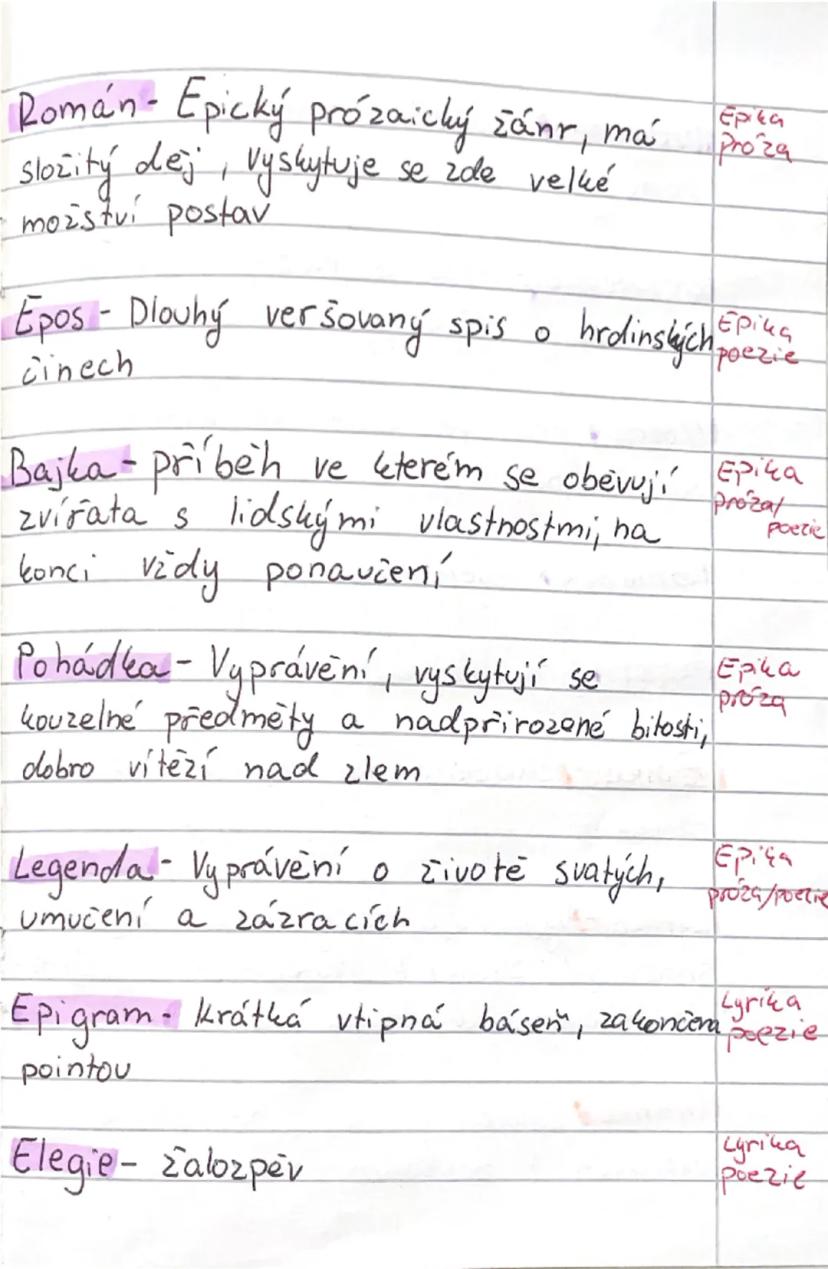 Román - Epický prózaický žánr, má
Epika
próza
složitý dej, vyskytuje se zde velké
možství postav
Epos - Dlouhý veršovaný spis o hrdinských
Epika
poezie
činech
Bajka - příběh ve kterém se oběvují
Epika
próza/
poezie
zvířata s lidskými vlastnostmi, na
konci vždy ponaučení
Pohádka - Vyprávění, vyskytují se
Epika
próza
kouzelné předměty a nadpřirozené bitosti,
dobro vítězí nad zlem
Legenda - Vyprávění o životě svatých,
Epika
próza/poezie
umučení a zázracích
Epigram - krátká vtipná báseň, zakončena
Lyrika
poezie
pointou
Elegie - žalozpěv
Lyrika
poezie